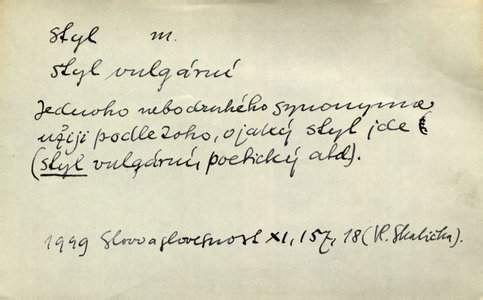 styl m.
styl vulgární
Jednoho nebo druhého synonyma
užiji podle toho, o jaký styl jde
(styl vulgární, poetický atd).
1949 Slovo a slovesnost XI, 157, 18 (V. Skalička).